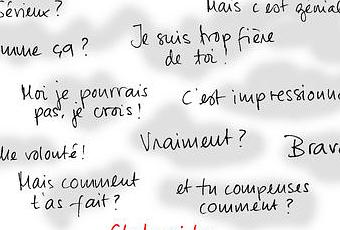 Sérieux ?
Mais c'est génial
comme ça ?
Je suis trop fière
de toi !
Moi je pourrais
pas, je crois !
C'est impressionn
Vraiment ?
Brav
volonté !
Mais comment
t'as fait ?
et tu compenses
comment ?